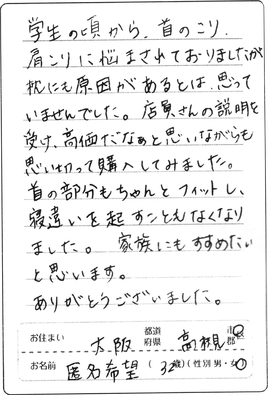 学生の頃から、首のこり、
肩こりに悩まされておりましたが
枕にも原因があるとは思って
いませんでした。店員さんの説明を
受け、高価だなぁと思いながらも
思い切って購入してみました。
首の部分もちゃんとフィットし、
寝違いを起すことえなくなり
ました。 家族にもすすめたい
と思います。
ありがとうございました。
お住まい 大阪 都道府県 高槻 市郡
お名前 匿名希望 (32歳)(性別 男・女)